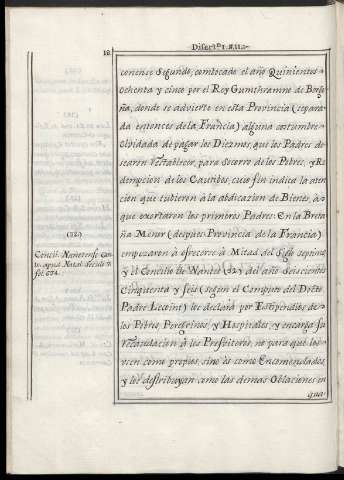 18.
Disert.on I. §. II.
conense Segundo, combocado el año Quinientos
ochenta y cinco por el Rey Gumthramne de Borgo
ña, donde se advierte en esta Provincia (separa
da entonces de la Francia) alguna costumbre
olbidada de pagar los Diezmos, que los Padres de
searon restablecer, para socorro de los Pobres, y Re
dempcion de los Cautibos, cuio fin indica la aten
cion que tubieron à la abdicazion de Bienes, à
que exortaron los primeros Padres: En la Breta
ña Menor (después Provincia de la Francia)
empezaron à ofrecerse à Mitad del Siglo septimo
y el Concilio de Nantes (32) del año Seiscientos
Cinquenta y Seis (segun el Computo del Docto
Padre Lecoint) los declarò por Estipendios de
los Pobres Peregrinos, y Hospitales, y encarga su
recaudacion à los Presviteros, no para que los
usen como propios, sino es como Encomendados,
y los destribuyan como las demas Oblaciones in
qua
(32)
Concil. Nanetense Can.
apud Natal. Seculo 7.
fol. 674.